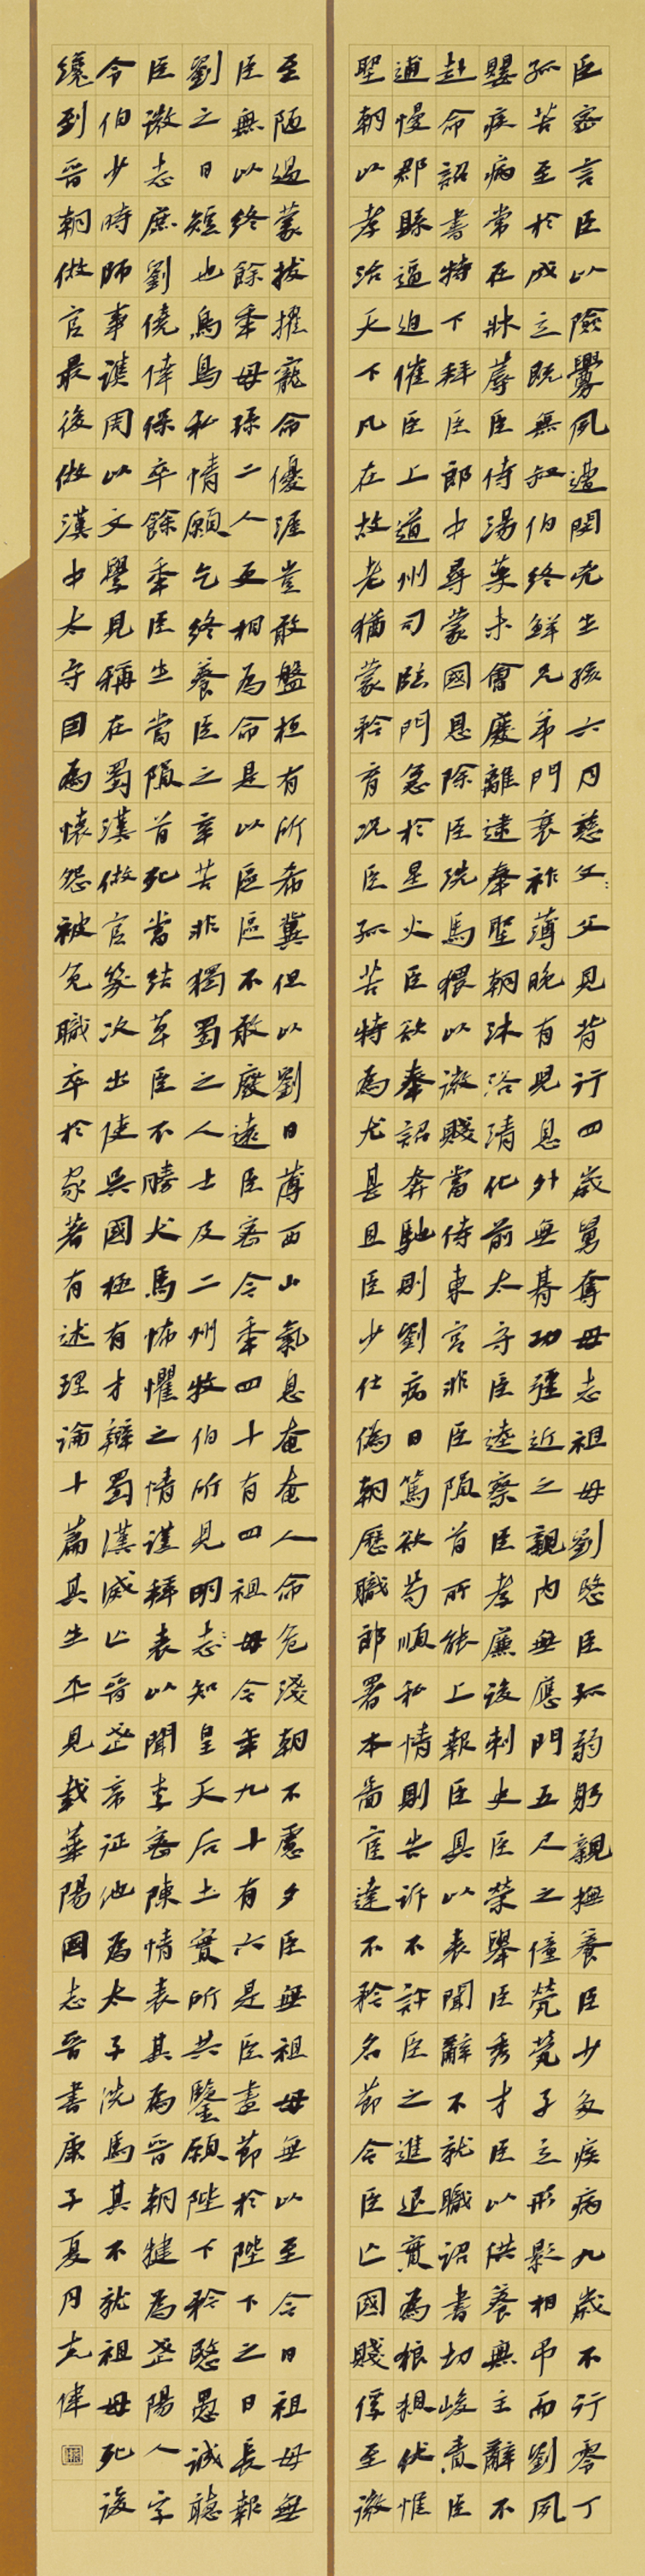 臣密言臣以險釁夙遭閔凶生孩六月慈父父見背行四歲舅奪母志祖母劉愍臣孤弱躬親撫養臣少多疾病九歲不行零丁
孤苦至於成立既無叔伯終鮮兄弟門衰祚薄晚有兒息外無朞功彊近之親內無應門五尺之僮煢煢孑立形影相弔而劉夙
嬰疾病常在牀蓐臣侍湯藥未會廢離逮奉聖朝沐浴清化前太守臣逵察臣孝廉後刺史臣榮舉臣秀才臣以供養無主辭不
赴命詔書特下拜臣郎中尋蒙國恩除臣洗馬猥以微賤當侍東宮非臣隕首所能上報臣具以表聞辭不就職詔書切峻責臣
逋慢郡縣逼迫催臣上道州司臨門急於星火臣欲奉詔奔馳則劉病日篤欲苟順私情則告訴不許臣之進退實為狼狽伏惟
聖朝以孝治天下凡在故老猶蒙矜育況臣孤苦特為尤甚且臣少仕偽朝歷職郎署本啚宦達不矜名節今臣亡國賤俘至微
至陋過蒙拔擢寵命優渥豈敢盤桓有所希冀但以劉日薄西山氣息奄奄人命危淺朝不慮夕臣無祖母無以至今日祖母無
臣無以終餘年母孫二人更相為命是以區區不敢廢遠臣密今年四十有四祖母今年九十有六是臣盡節於陛下之日長報
劉之日短也烏鳥私情願乞終養臣之辛苦非獨蜀之人士及二州牧伯所見明志知皇天后土實所共鑒願陛下矜愍愚誠聽
臣微志庶劉僥倖保卒餘年臣生當隕首死當結草臣不勝犬馬怖懼之情謹拜表以聞李密陳情表其為晉朝犍為武陽人字
令伯少時師事譙周以文學見稱在蜀漢做官幾次出使吳國極有才辯蜀漢滅亡晉武帝征他為太子洗馬其不就祖母死後
纔到晉朝做官最後做漢中太守因為懷怨被免職卒於家著有述理論十篇其生平見載華陽國志晉書康子夏月志偉